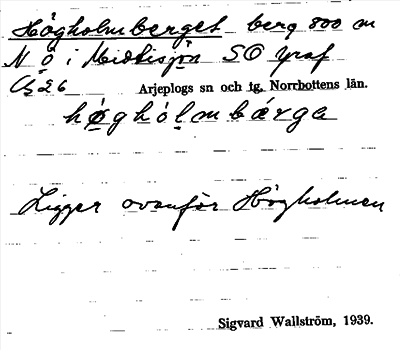 Högholmberget berg 800 m
N ö i Mittisjön SO Yraf
26
Arjeplogs sn och tg. Norrbottens län.
høghòlmbærga
Ligger ovanför Högholmen
Sigvard Wallström, 1939.